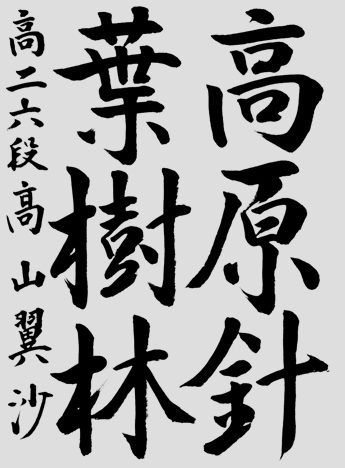 高原針
葉樹林
高二六段高山翼沙